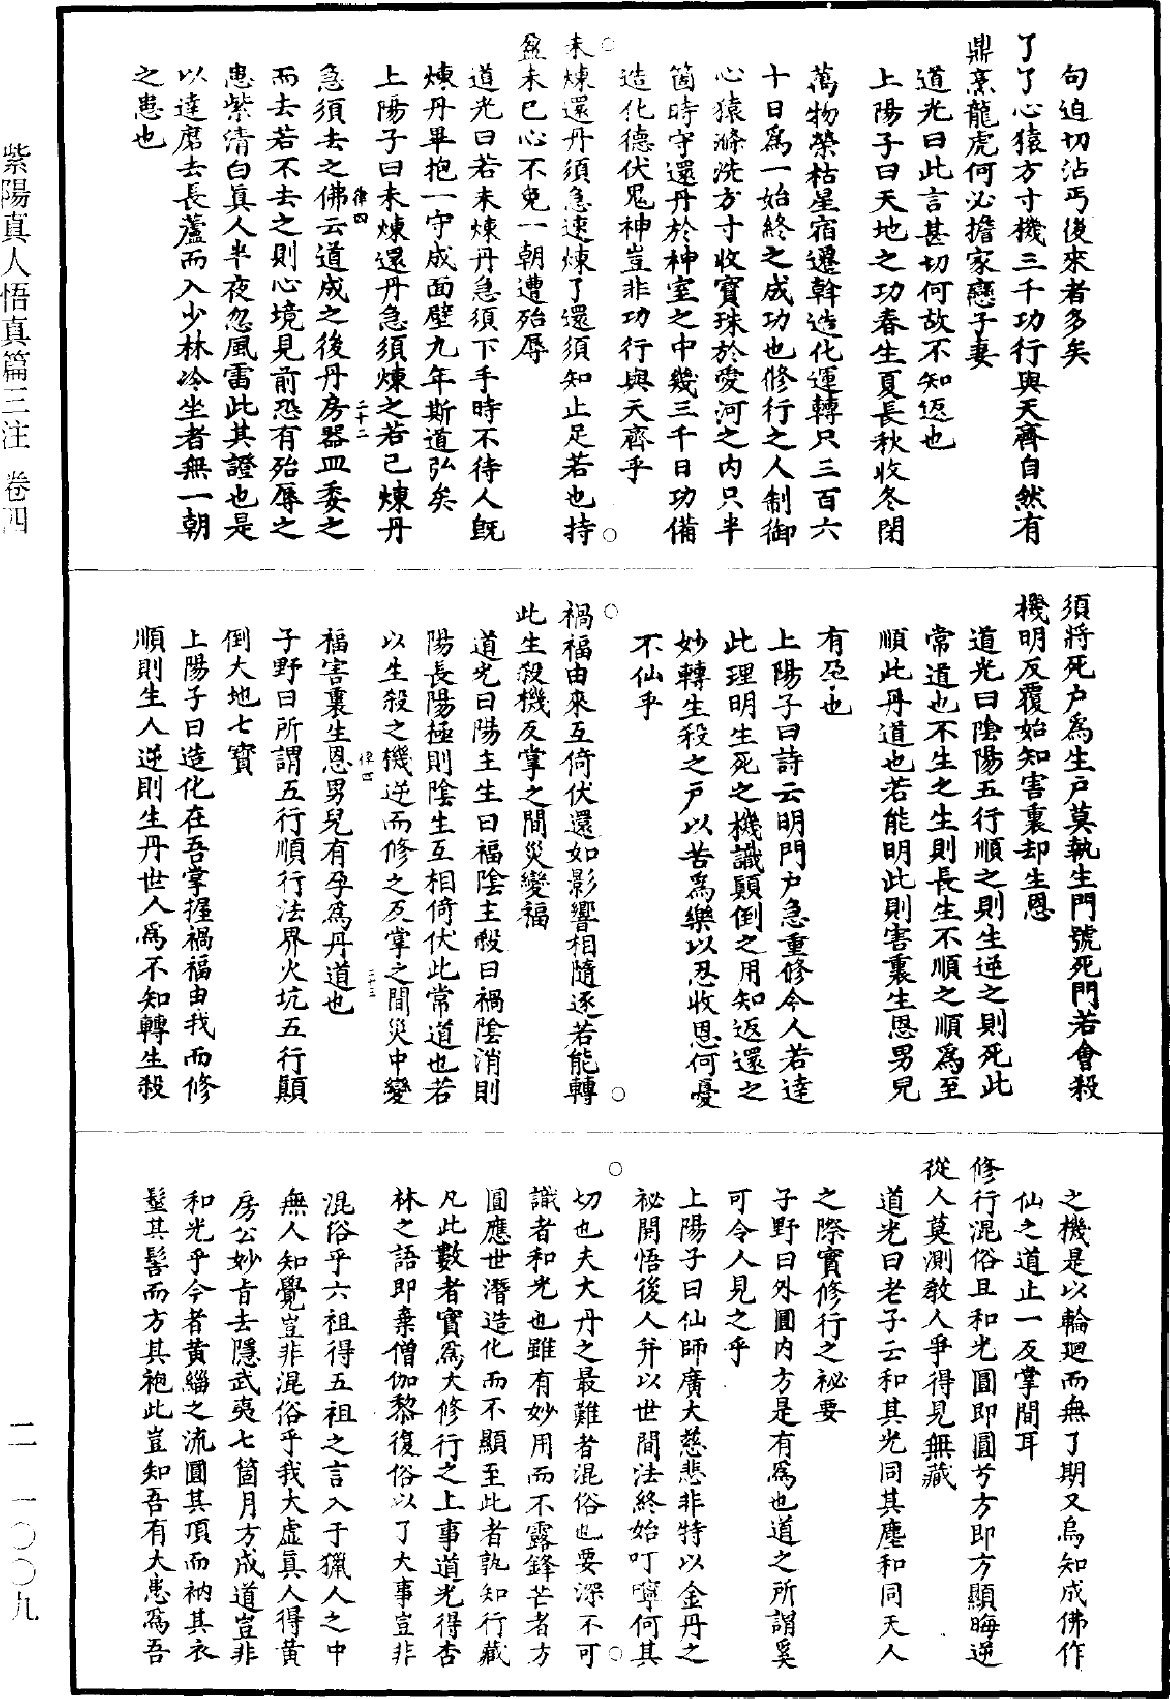 句迫切沾丐後來者多矣
了了心猿方寸機三千功行與天齊自然有
鼎烹龍虎何必擔家戀子妻
道光曰此言甚切何故不知返也
上陽子曰天地之功春生夏長秋收冬閉
萬物榮枯星宿遷斡造化運轉只三百六
十日爲一始終之成功也修行之人制御
心猿滌洗方寸收寶珠於愛河之内只半
箇時守還丹於神室之中幾三千日功備
造化德伏鬼神豈非功行與天齊乎
○未煉還丹須急速煉了還須知止足若也持○
盈未已心不免一朝遭殆辱
道光曰若未煉丹急須下手時不待人旣
煉丹畢抱一守成面壁九年斯道弘矣
上陽子曰未煉還丹急須煉之若已煉丹
律四 二十二
急須去之佛云道成之後丹房器皿委之
而去若不去之則心境見前恐有殆辱之
患紫清白眞人半夜忽風雷此其證也是
以達磨去長蘆而入少林冷坐者無一朝
之患也
須將死户爲生户莫執生門號死門若會殺
機明反覆始知害裏却生恩
道光曰陰陽五行順之則生逆之則死此
常道也不生之生則長生不順之順爲至
順此丹道也若能明此則害裏生恩男兒
有孕也
上陽子曰詩云明門户急重修今人若達
此理明生死之機識顛倒之用知返還之
妙轉生殺之戶以苦爲樂以忍收恩何憂
不仙乎
○禍福由來互倚伏還如影響相隨逐若能轉○
此生殺機反掌之間災變福
道光曰陽主生曰福陰主殺曰禍陰消則
陽長陽極則陰生互相倚伏此常道也若
以生殺之機逆而修之反掌之間災中變
律四 二十三
福害裏生恩男兒有孕爲丹道也
子野曰所謂五行順行法界火坑五行顛
倒大地七寶
上陽子曰造化在吾掌握禍福由我而修
順則生人逆則生丹世人爲不知轉生殺
之機是以輪廻而無了期又烏知成佛作
仙之道止一反掌間耳
修行混俗且和光圓即圓兮方即方顯晦逆
從人莫測教人爭得見無藏
道光曰老子云和其光同其塵和同天人
之際實修行之祕要
子野曰外圓内方是有爲也道之所謂奚
可令人見之乎
上陽子曰仙師廣大慈悲非特以金丹之
祕開悟後人并以世間法終始叮嚀何其○
○切也夫大丹之最難者混俗也要深不可
識者和光也雖有妙用而不露鋒芒者方
圓應世潛造化而不顯至此者孰知行藏
凡此數者實爲大修行之上事道光得杏
林之語即棄僧伽黎復俗以了大事豈非
混俗乎六祖得五祖之言入于獵人之中
無人知覺豈非混俗乎我大虚眞人得黄
房公妙旨去隱武夷七箇月方成道豈非
和光乎今者黄緇之流圓其頂而衲其衣
髽其髻而方其袍此豈知吾有大患爲吾
紫陽真人悟真篇三注 卷四
二 一〇〇九